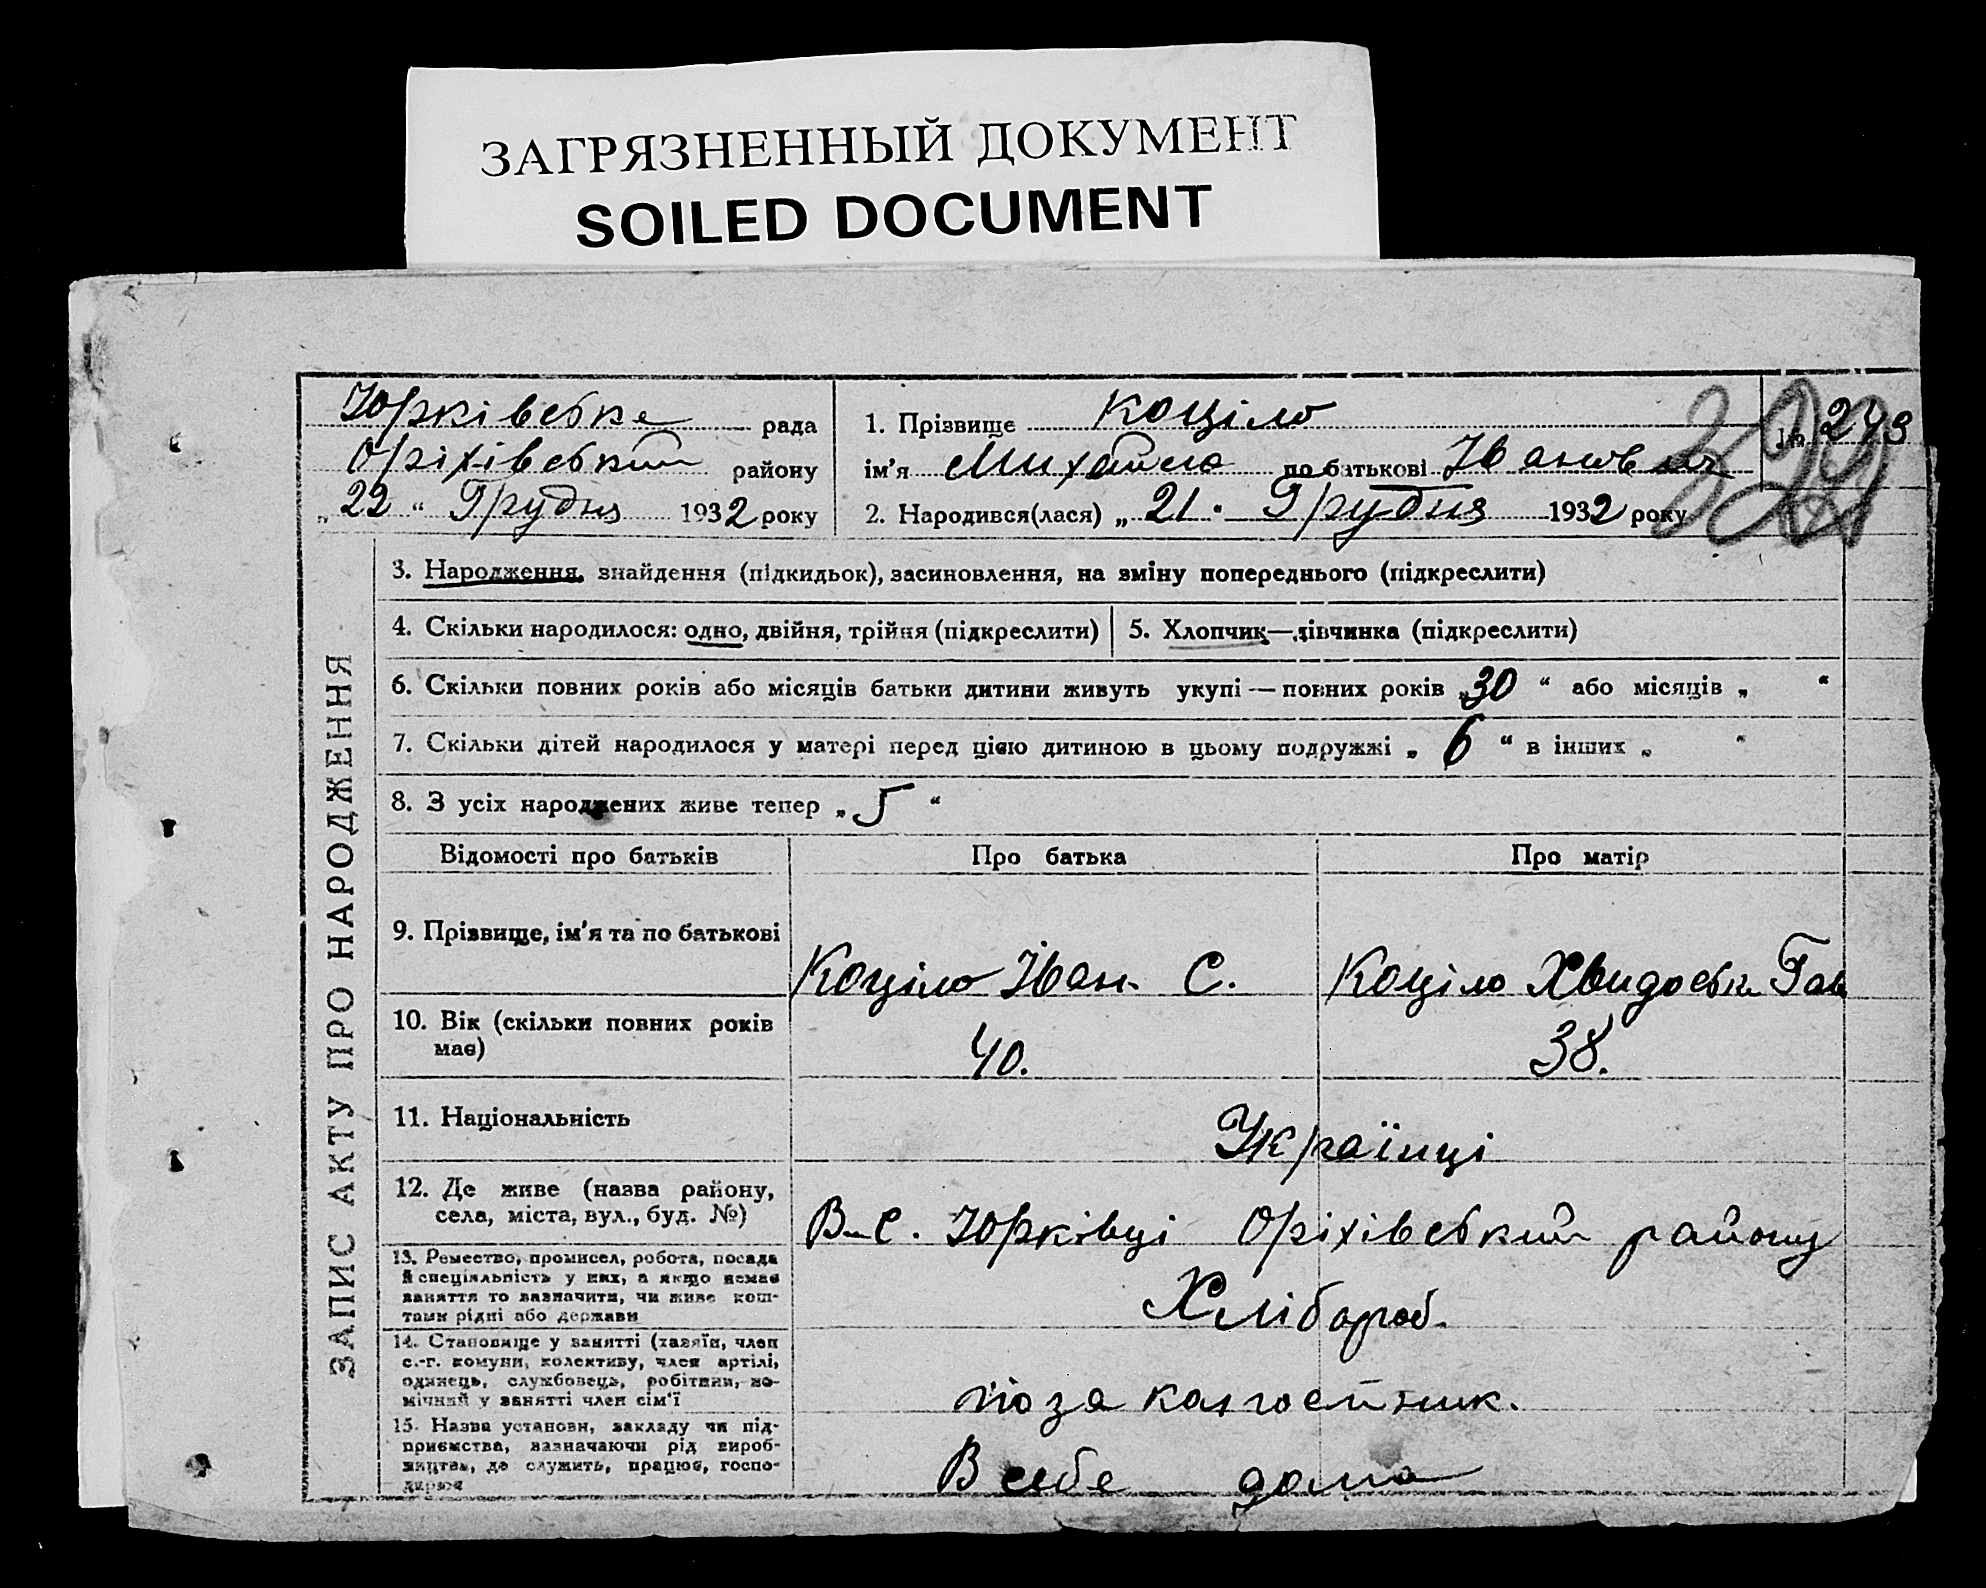 ЗАГРЯЗНЕННЫЙ ДОКУМЕНТ
SOILED DOCUMENT
Юрківська рада
Оріхівський району
„ 22 “ Грудня 1932 року
1. Прізвище Коціло
№ 243
ім'я Михайло по батькові Іванович
2. Народився(лася) „ 21 . Грудня 1932 року
ЗАПИС АКТУ ПРО НАРОДЖЕННЯ
3. Народження, знайдення (підкидьок), засиновлення, на зміну попереднього (підкреслити)
4. Скільки народилося: одно, двійня, трійня (підкреслити)
5. Хлопчик—дівчинка (підкреслити)
6. Скільки повних років або місяців батьки дитини живуть укупі — повних років „30 “ або місяців „ “
7. Скільки дітей народилося у матері перед цією дитиною в цьому подружжі „ 6 “ в інших „ “
8. З усіх народжених живе тепер „ 5 “
Відомості про батьків Про батька Про матір
9. Прізвище, ім'я та по батькові
Коціло Іван. С. Коціло Хвидоська Гав
10. Вік (скільки повних років
має)
40. 38.
11. Національність
Українці
12. Де живе (назва району,
села, міста, вул., буд. №)
В с. Юрківці Оріхівський району
13. Ремество, промисел, робота, посада
й спеціяльність у них, а якщо немає
заняття то зазначити, чи живе кош-
тами рідні або держави
Хлібороб.
14. Становище у занятті (хазяїн, член
с.-г. комуни, колективу, член артілі,
одинець, службовець, робітник, по-
мічний у занятті член сім'ї
поза колгоспник.
15. Назва установи, закладу чи під-
приємства, зазначаючи рід вироб-
ництва, де служить, працює, госпо-
дарює
В себе дома